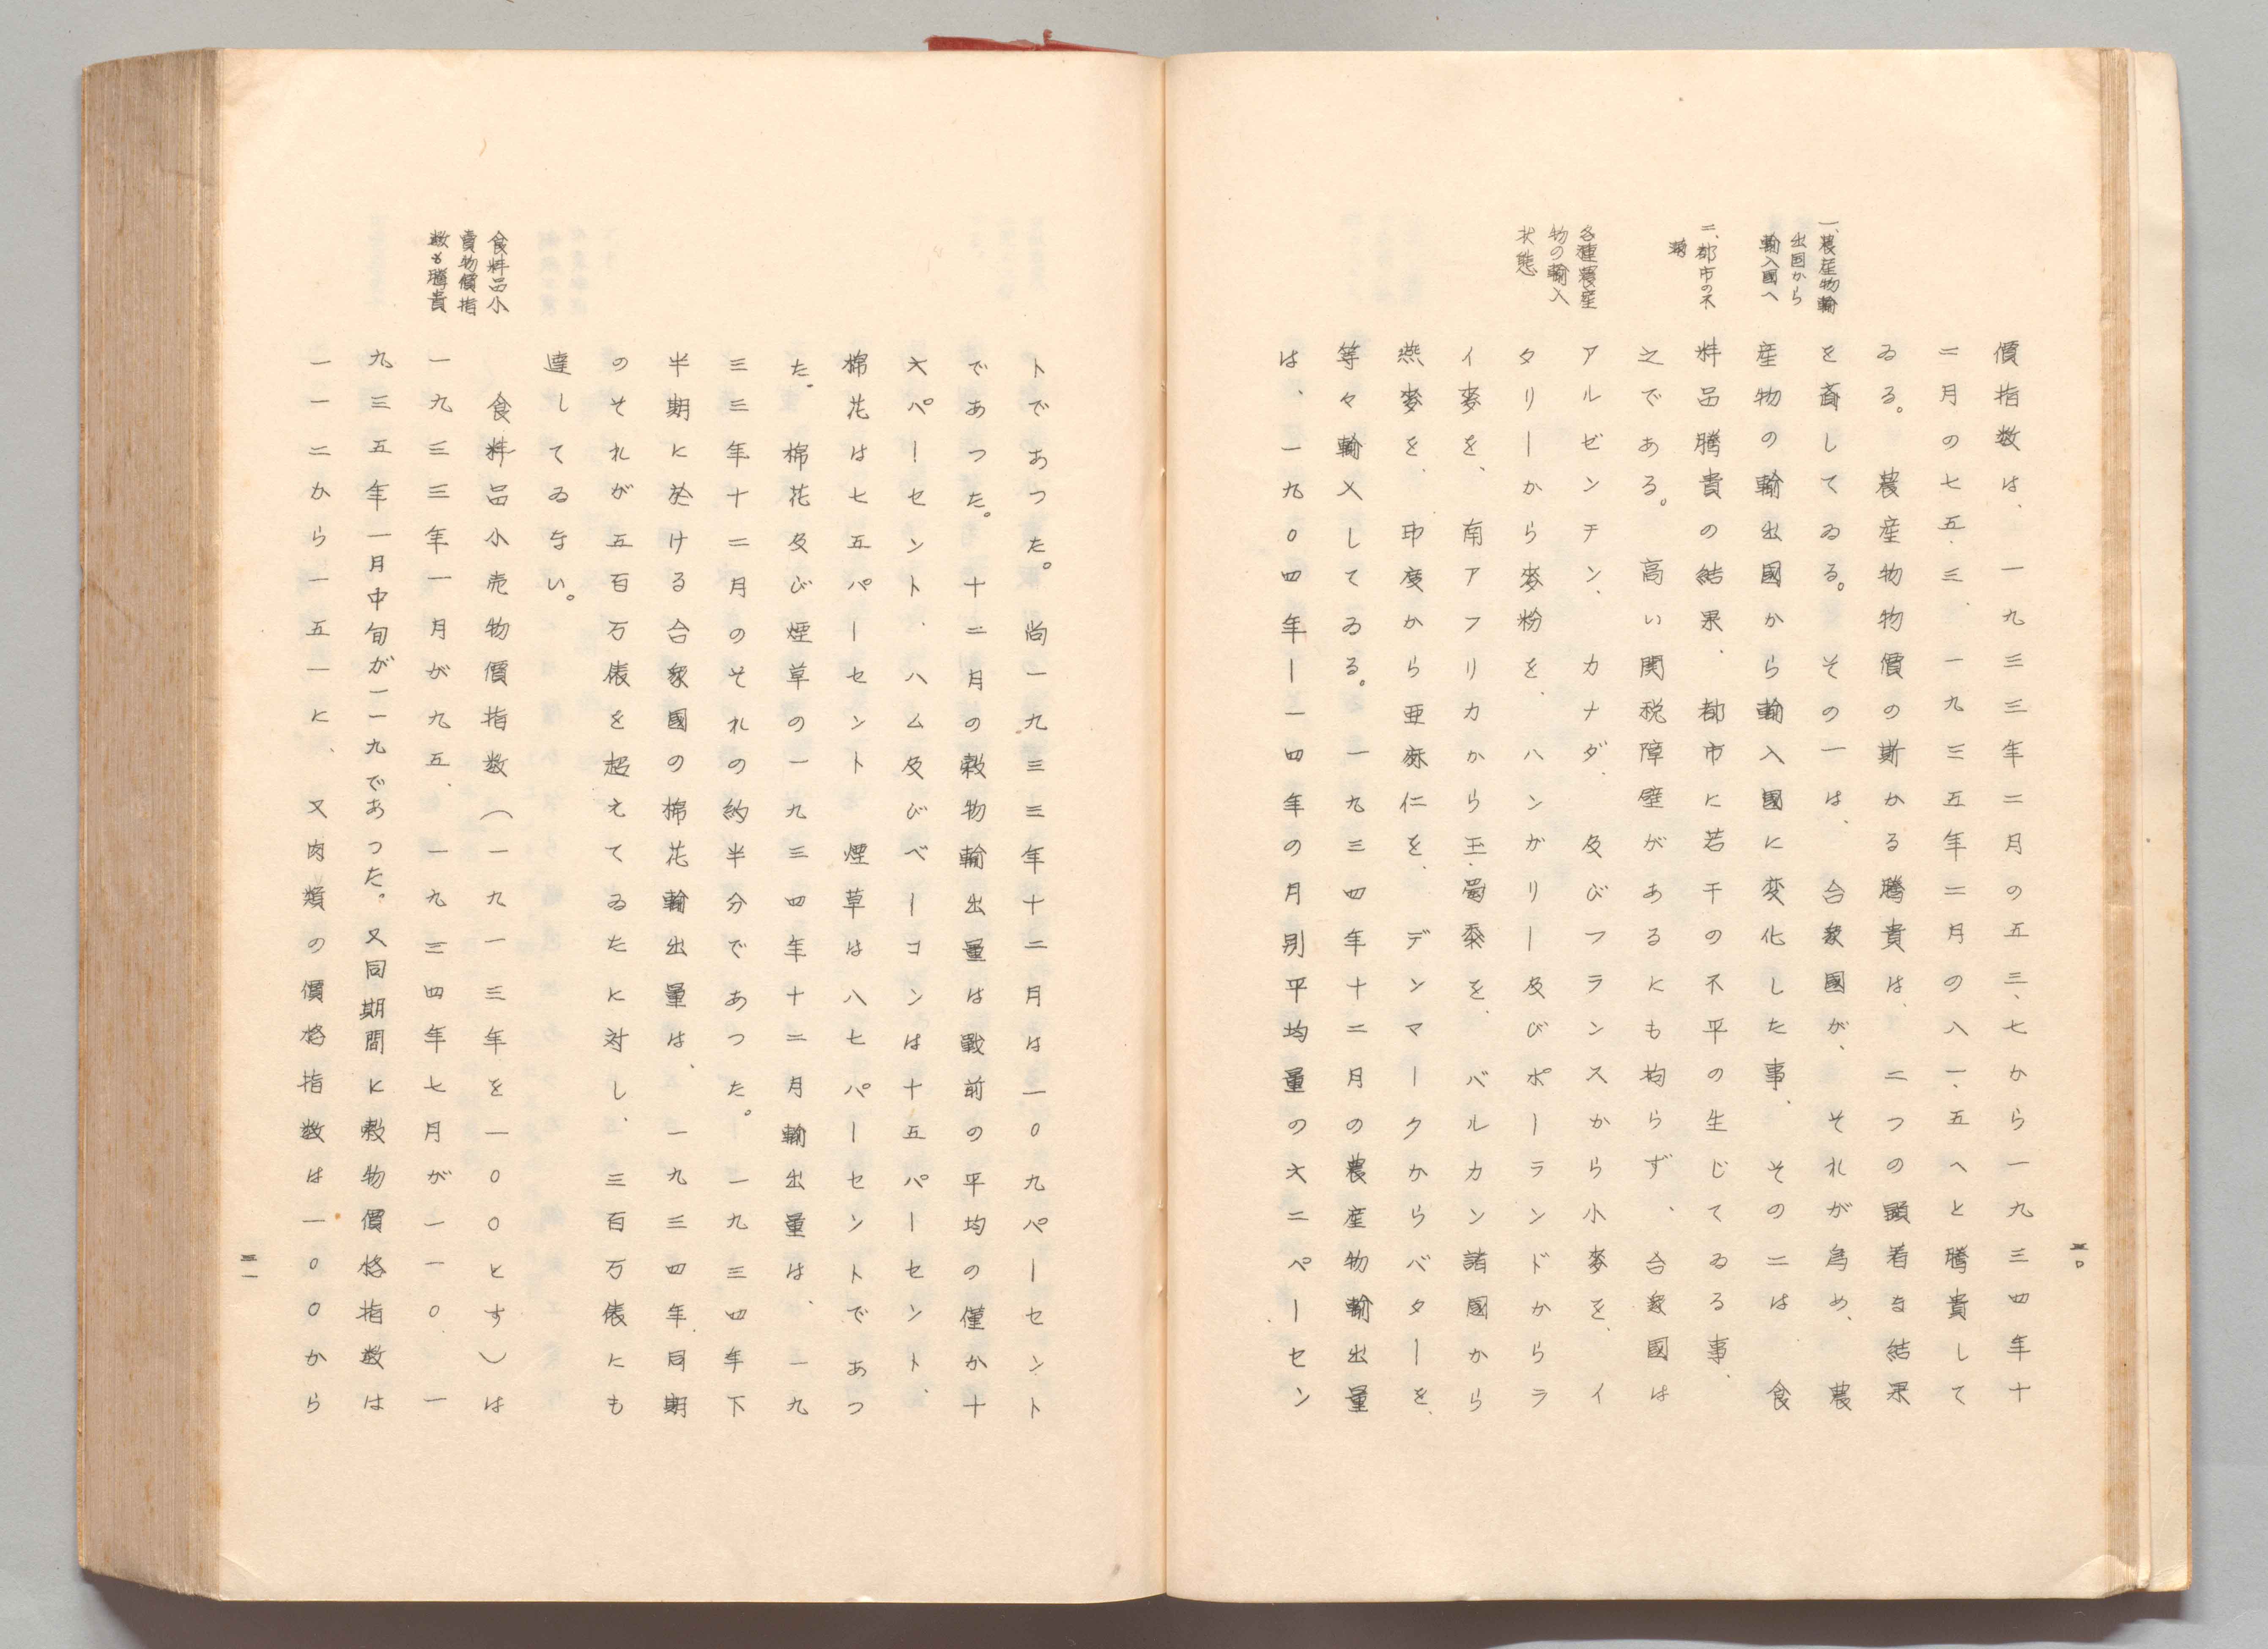 三〇
一、農産物輸
出国から
輸入國へ
二、都市の不
満
各種農産
物の輸入
状態
價指数は、一九三三年二月の五三、七から一九三四年十
二月の七五.三、一九三五年二月の八一、五へと騰貴して
ゐる。農産物物價の斯かる騰貴は、二つの顕着な結果
を齎してゐる。その一は、合衆國が、それが為め、農
産物の輸出國から輸入國に変化した事、その二は食
料品騰貴の結果、都市に若干の不平の生じてゐる事、
之である。高い関税障壁があるにも拘らず、合衆國は
アルゼンチン、カナダ、及びフランスから小麥を、イ
タリーから麥粉を、ハンガリー及びポーランドからラ
イ麥を、南アフリカから玉蜀黍を、バルカン諸國から
燕麥を、印度から亜麻仁を、デンマークからバターを、
等々輸入してゐる。一九三四年十二月の農産物輸出量
は、一九〇四年ー一四年の月別平均量の六二ペーセン
トであつた。尚一九三三年十二月は一〇九パーセント
であつた。十二月の穀物輸出量は戰前の平均の僅か十
六パーセント、ハム及びベーコンは十五パーセント、
棉花は七五パーセント、煙草は八七パーセントであつ
た。棉花及び煙草の一九三四年十二月輸出量は、一九
三三年十二月のそれの約半分であつた。一九三四年下
半期に於ける合衆國の棉花輸出量は、一九三四年同期
のそれが五百万俵を超えてゐたに対し、三百万俵にも
達してゐない。
食料品小
賣物價指
数も騰貴
食料品小売物價指数（一九一三年を一〇〇とす）は
一九三三年一月が九五、一九三四年七月が一一〇、一
九三五年一月中旬が一一九であつた。又同期間に穀物價格指数は
一一二から一五一に、又肉類の價格指数は一〇〇から
三一